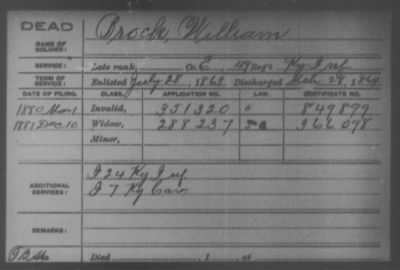 DEAD
NAME OF SOLDIER: Brock, William
SERVICE: Late rank, Co. E, 49 Reg't Ky Inf
TERM OF SERVICE: Enlisted July 28, 1863. Discharged Mch. 28, 1864
DATE OF FILING. CLASS. APPLICATION NO. LAW. CERTIFICATE NO.
1880 Mar 1 Invalid, 351320 849899
1881 Dec. 10 Widow, 288237 366098
Minor,
ADDITIONAL SERVICES: I 24 Ky Inf
I 7 Ky Cav.
REMARKS:
Died , 1 , at